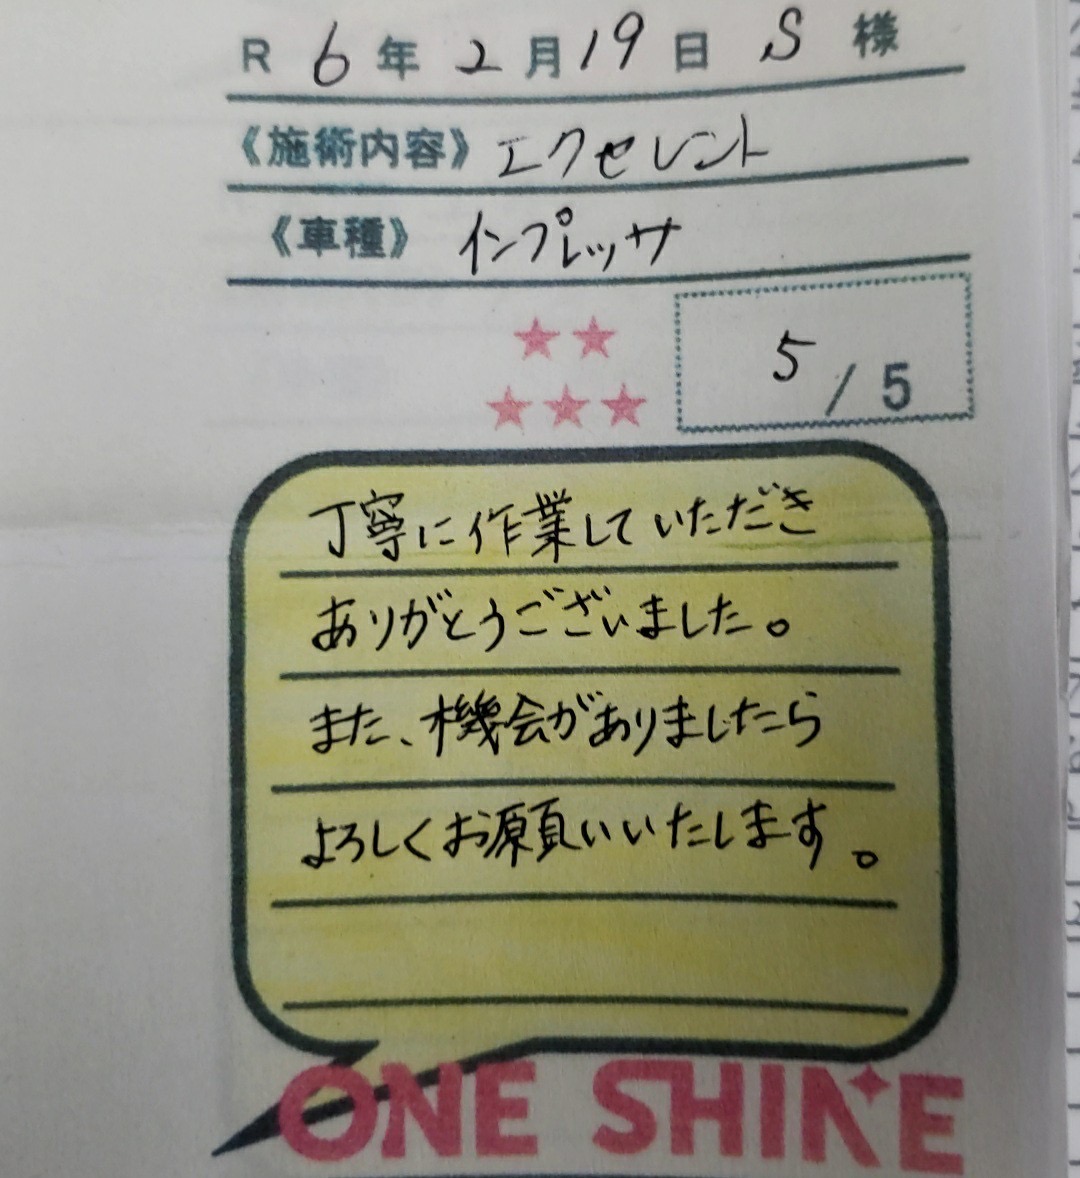 R 6年 2月19日 S 様
《施術内容》エクセレント
《車種》インプレッサ
★★
★★★
5/5
丁寧に作業していただき
ありがとうございました。
また、機会がありましたら
よろしくお願いいたします。
ONE SHINE